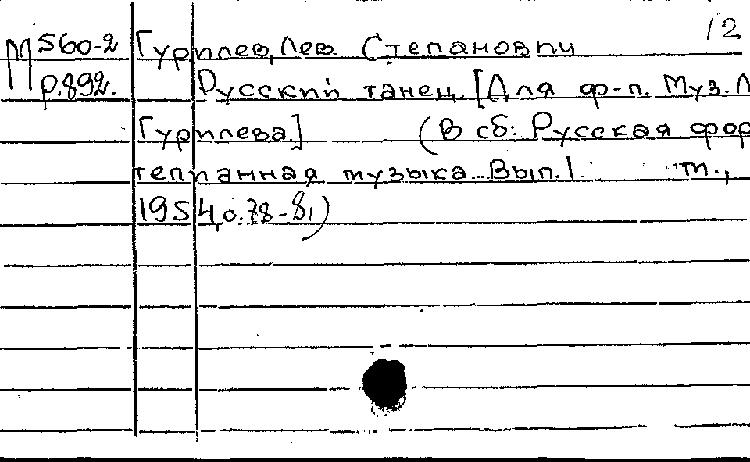 12
М 560-2 Гурилев, Лев Степанович
р.892. Русский танец. [Для ф-п. Муз. Л
Гурилева] (В сб: Русская фор
тепианная музыка. Вып. 1 m.,
1954, с. 78-81)